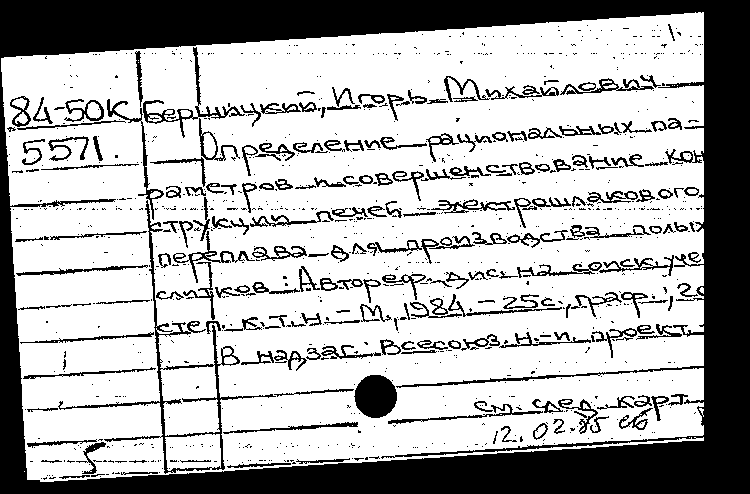 1.
84-50К Бершицкий, Игорь Михайлович.
5571. Определение рациональных па-
раметров и совершенствование кон
струкции печей электрошлакового
переплава для производства полых
слитков: Автореф. дис. на соиск. уче
степ. к.т.н. - М., 1984. - 25с., граф.; 20
В надзаг.: Всесоюз. н.-и. проект. -
см. след. карт.
12.02.85
5